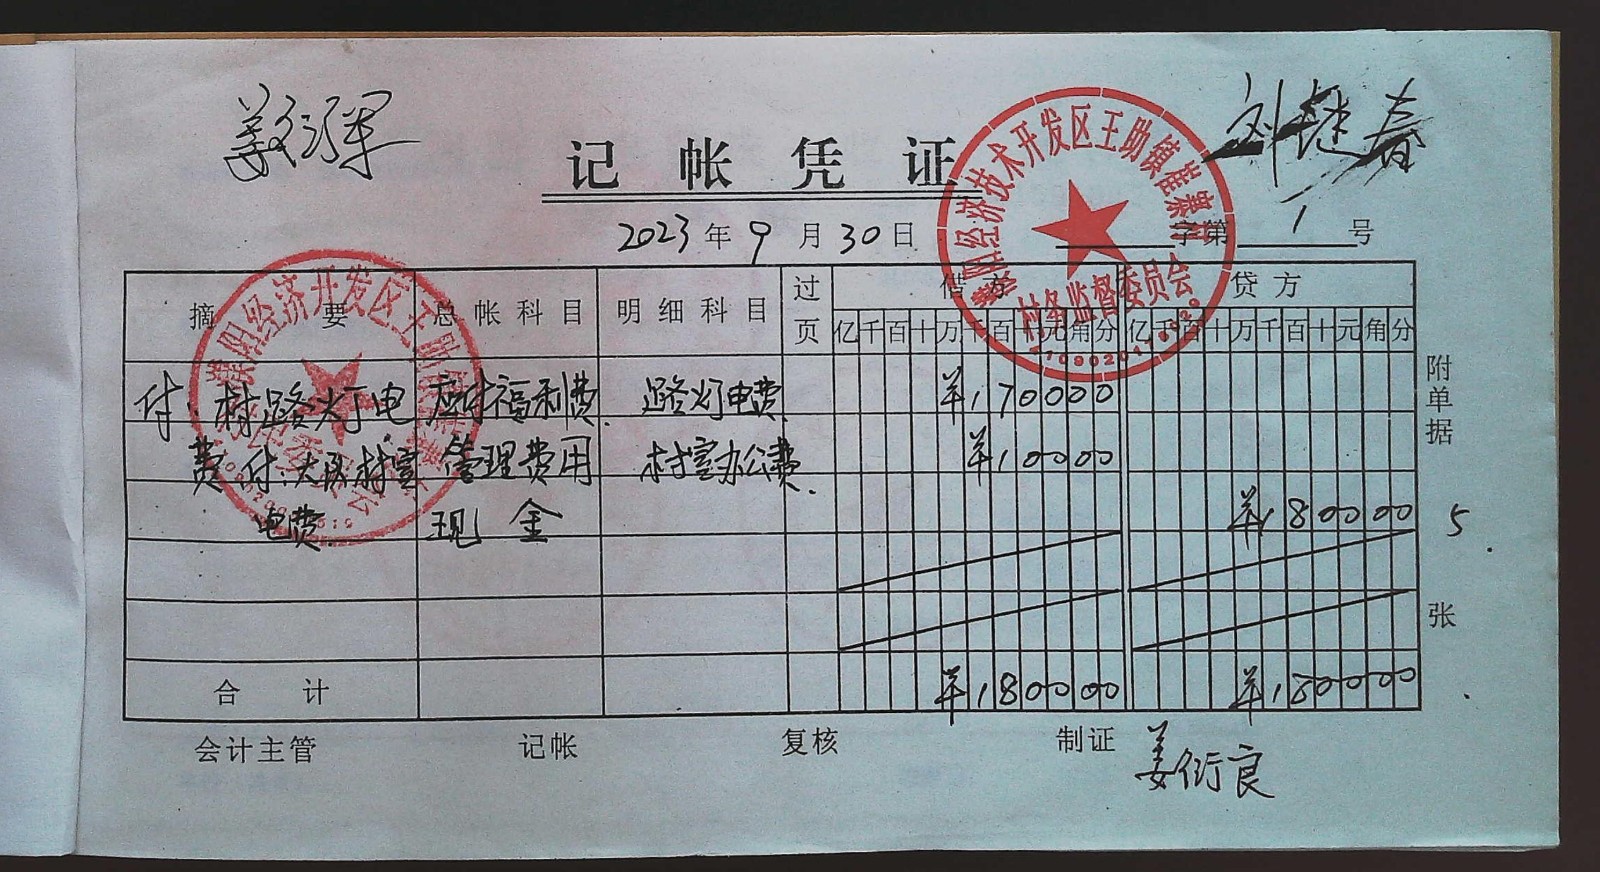 姜衍军
刘继春
记帐凭证
2023年9月30日
字第 1 号
摘要 总帐科目 明细科目 过页 借方 贷方
亿千百十万千百十元角分 亿千百十万千百十元角分
付:村路灯电 应付福利费 路灯电费 ¥170000
费 付:大队村室 管理费用 村室办公费 ¥10000
电费 现金 ¥180000
合计 ¥180000 ¥180000
附单据 5 张
会计主管 记帐 复核 制证 姜衍良
濮阳经济技术开发区王助镇崔寨村
村务监督委员会
濮阳经济开发区王助镇